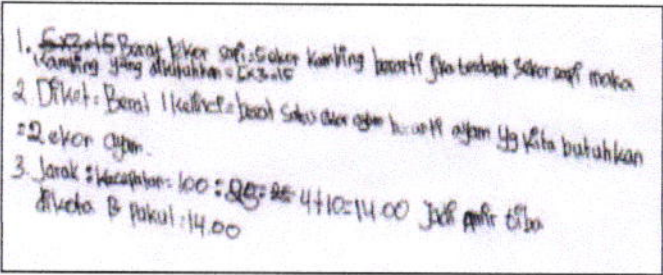 1. 5x3=15 Berat 1 ekor sapi = 5 ekor kambing berarti jika terdapat 3 ekor sapi maka
kambing yang dibutuhkan = 5x3=15
2. Diket = Berat 1 kelinci = berat ekor ayam berarti ayam yg kita butuhkan
= 2 ekor ayam.
3. Jarak : kecepatan = 100 : 25 = 4+10=14.00 Jadi amir tiba
dikota B pukul : 14.00